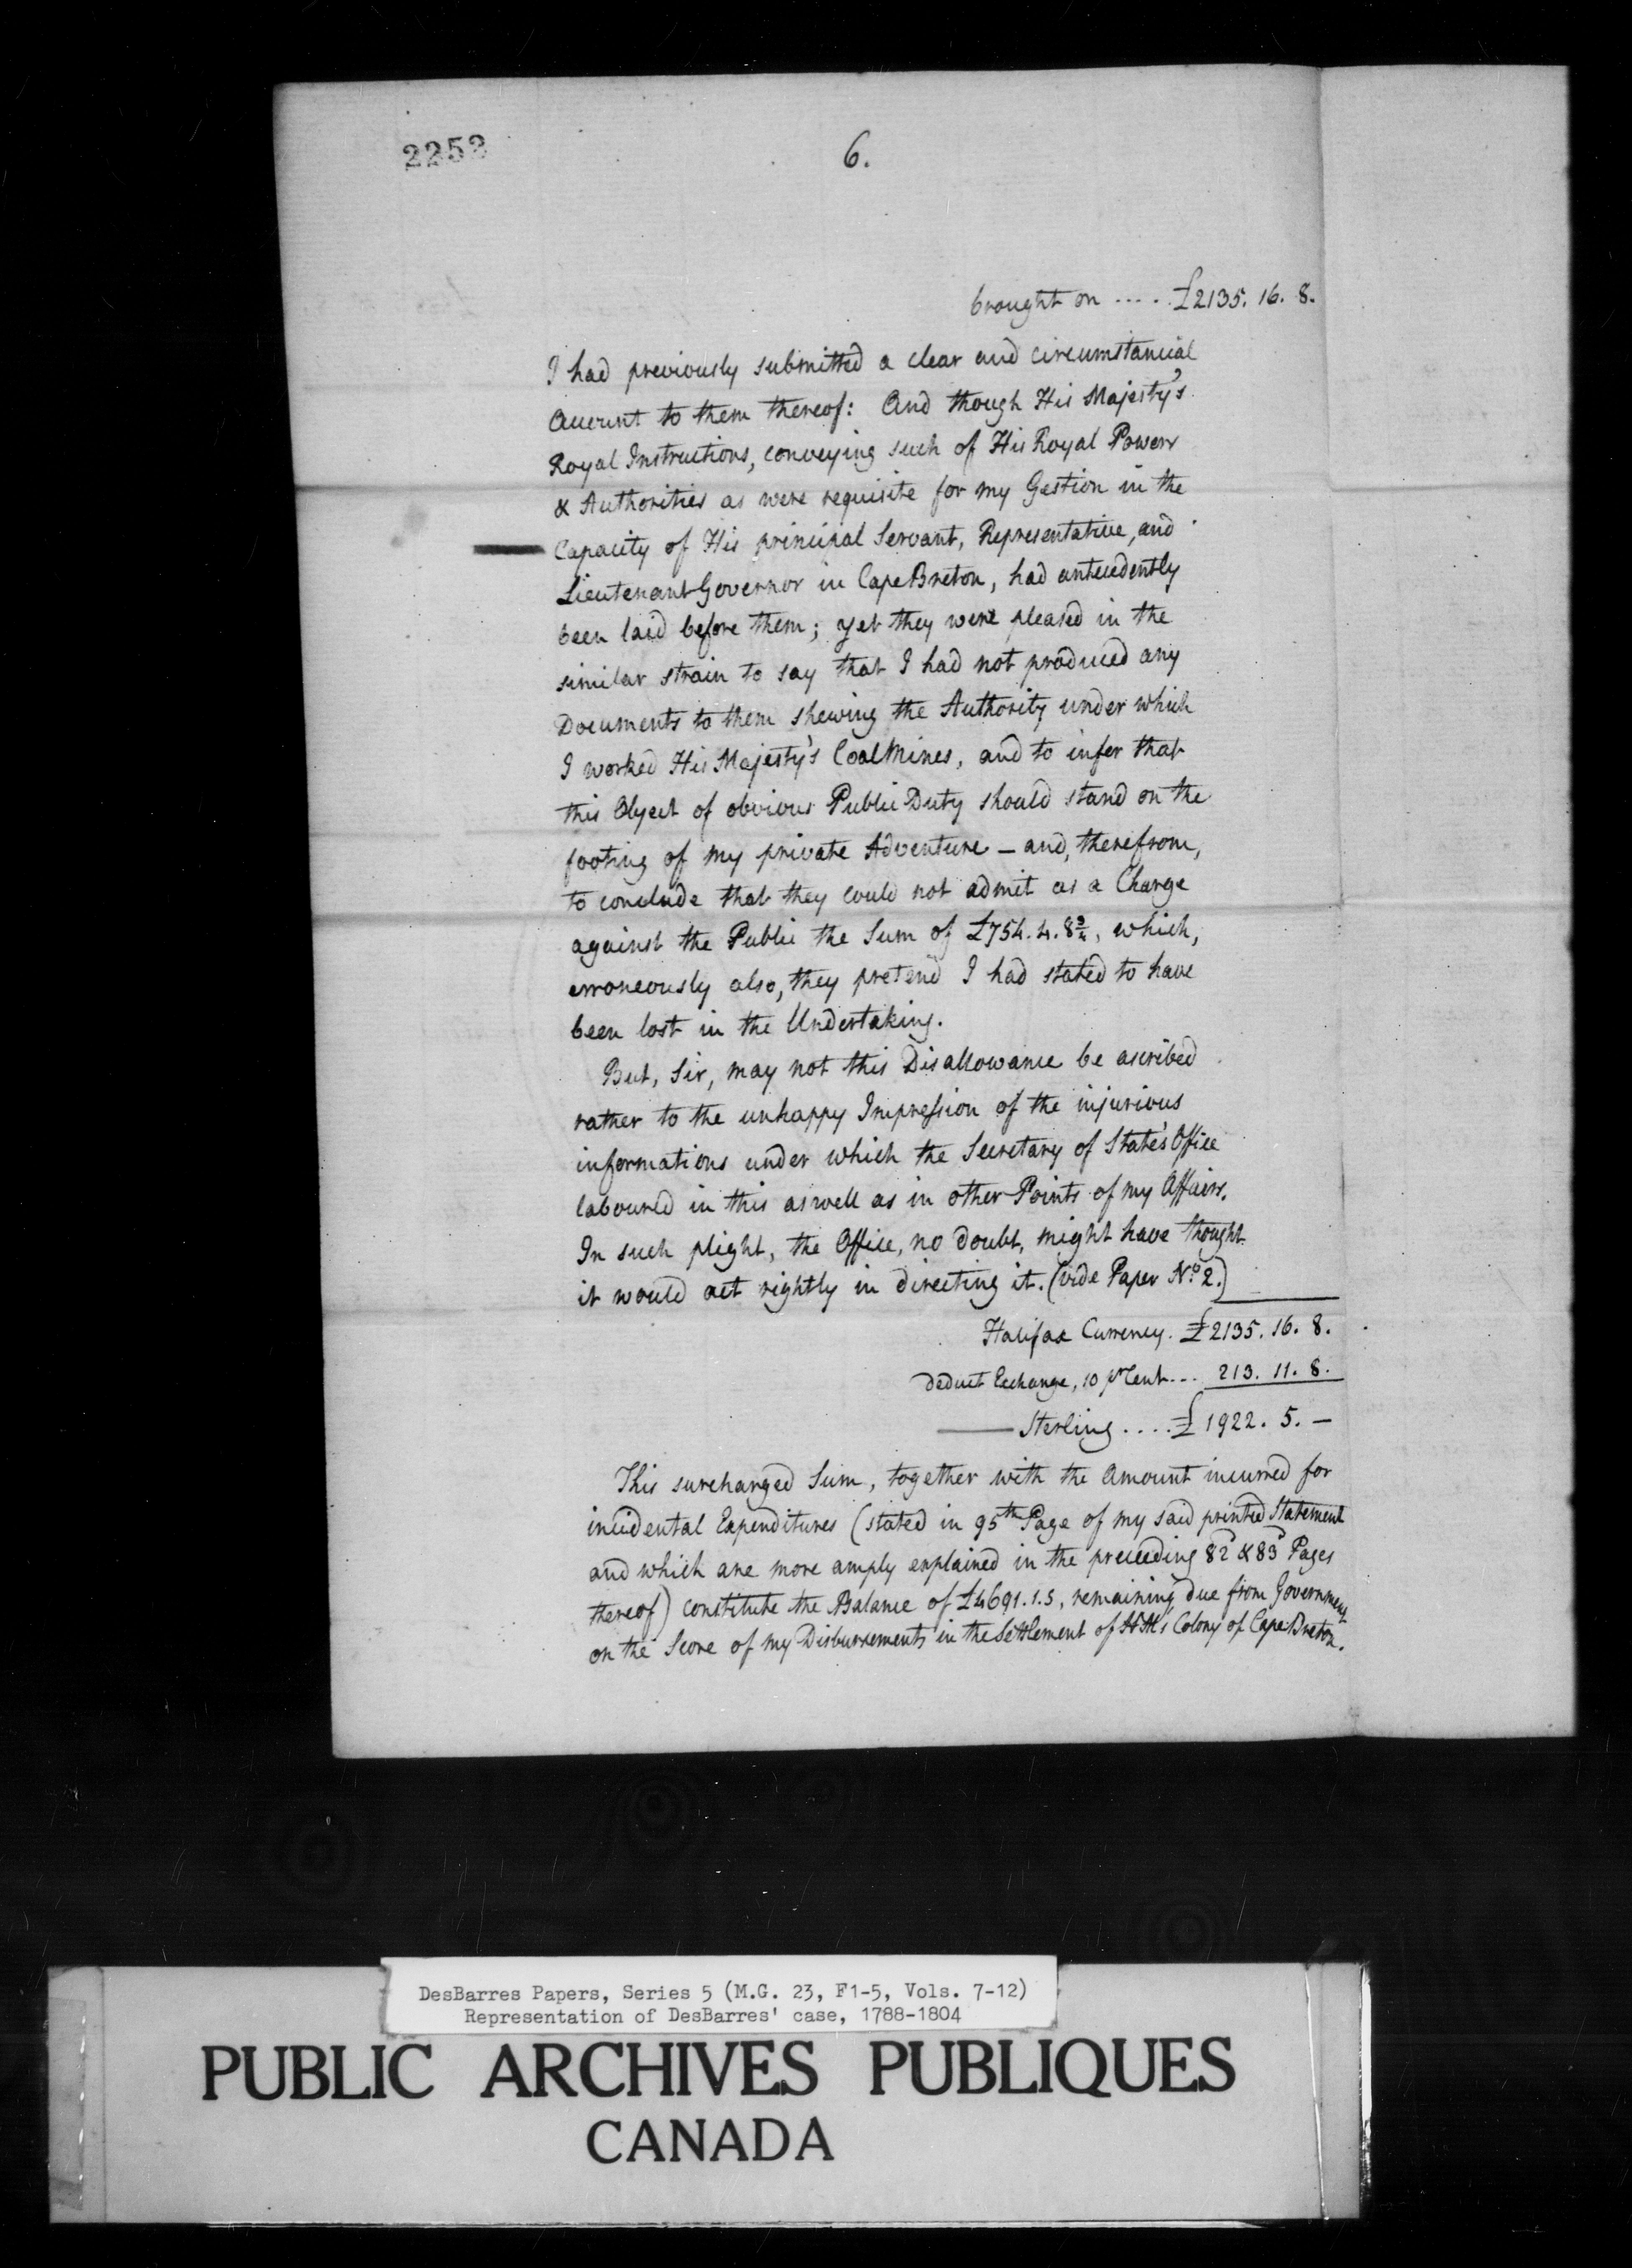 2252
6.
brought on ..... £2135. 16. 8.
I had previously submitted a clear and circumstancial
Account to them thereof: And though His Majesty's
Royal Instructions, conveying such of His Royal Powers
& Authorities as were requisite for my Gestion in the
Capacity of His principal Servant, Representative, and
Lieutenant Governor in Cape Breton, had antecedently
been laid before them; yet they were pleased in the
similar strain to say that I had not produced any
Documents to them shewing the Authority under which
I worked His Majesty's Coal Mines, and to infer that
this Object of obvious Public Duty should stand on the
footing of my private Adventure - and, therefrom,
to conclude that they could not admit as a Charge
against the Public the Sum of £754. 4. 8¾, which,
erroneously also, they pretend I had stated to have
been lost in the Undertaking.
But, Sir, may not this Disallowance be ascribed
rather to the unhappy Impression of the injurious
informations under which the Secretary of State's Office
laboured in this as well as in other Points of my Affairs.
In such plight, the Office, no doubt, might have thought
it would act rightly in directing it. (vide Paper No. 2.)
Halifax Currency. £2135. 16. 8.
Deduct Exchange, 10 pr Cent... 213. 11. 8.
Sterling .... £1922. 5. —
This surcharged Sum, together with the Amount incurred for
incidental Expenditures (stated in 95th Page of my said printed Statement
and which are more amply explained in the preceeding 82d & 83d Pages
thereof) constitute the Balance of £4691. 1. 5, remaining due from Government
on the Score of my Disbursements in the Settlement of H.M's Colony of Cape Breton.
DesBarres Papers, Series 5 (M.G. 23, F1-5, Vols. 7-12)
Representation of DesBarres' case, 1788-1804
PUBLIC ARCHIVES PUBLIQUES
CANADA